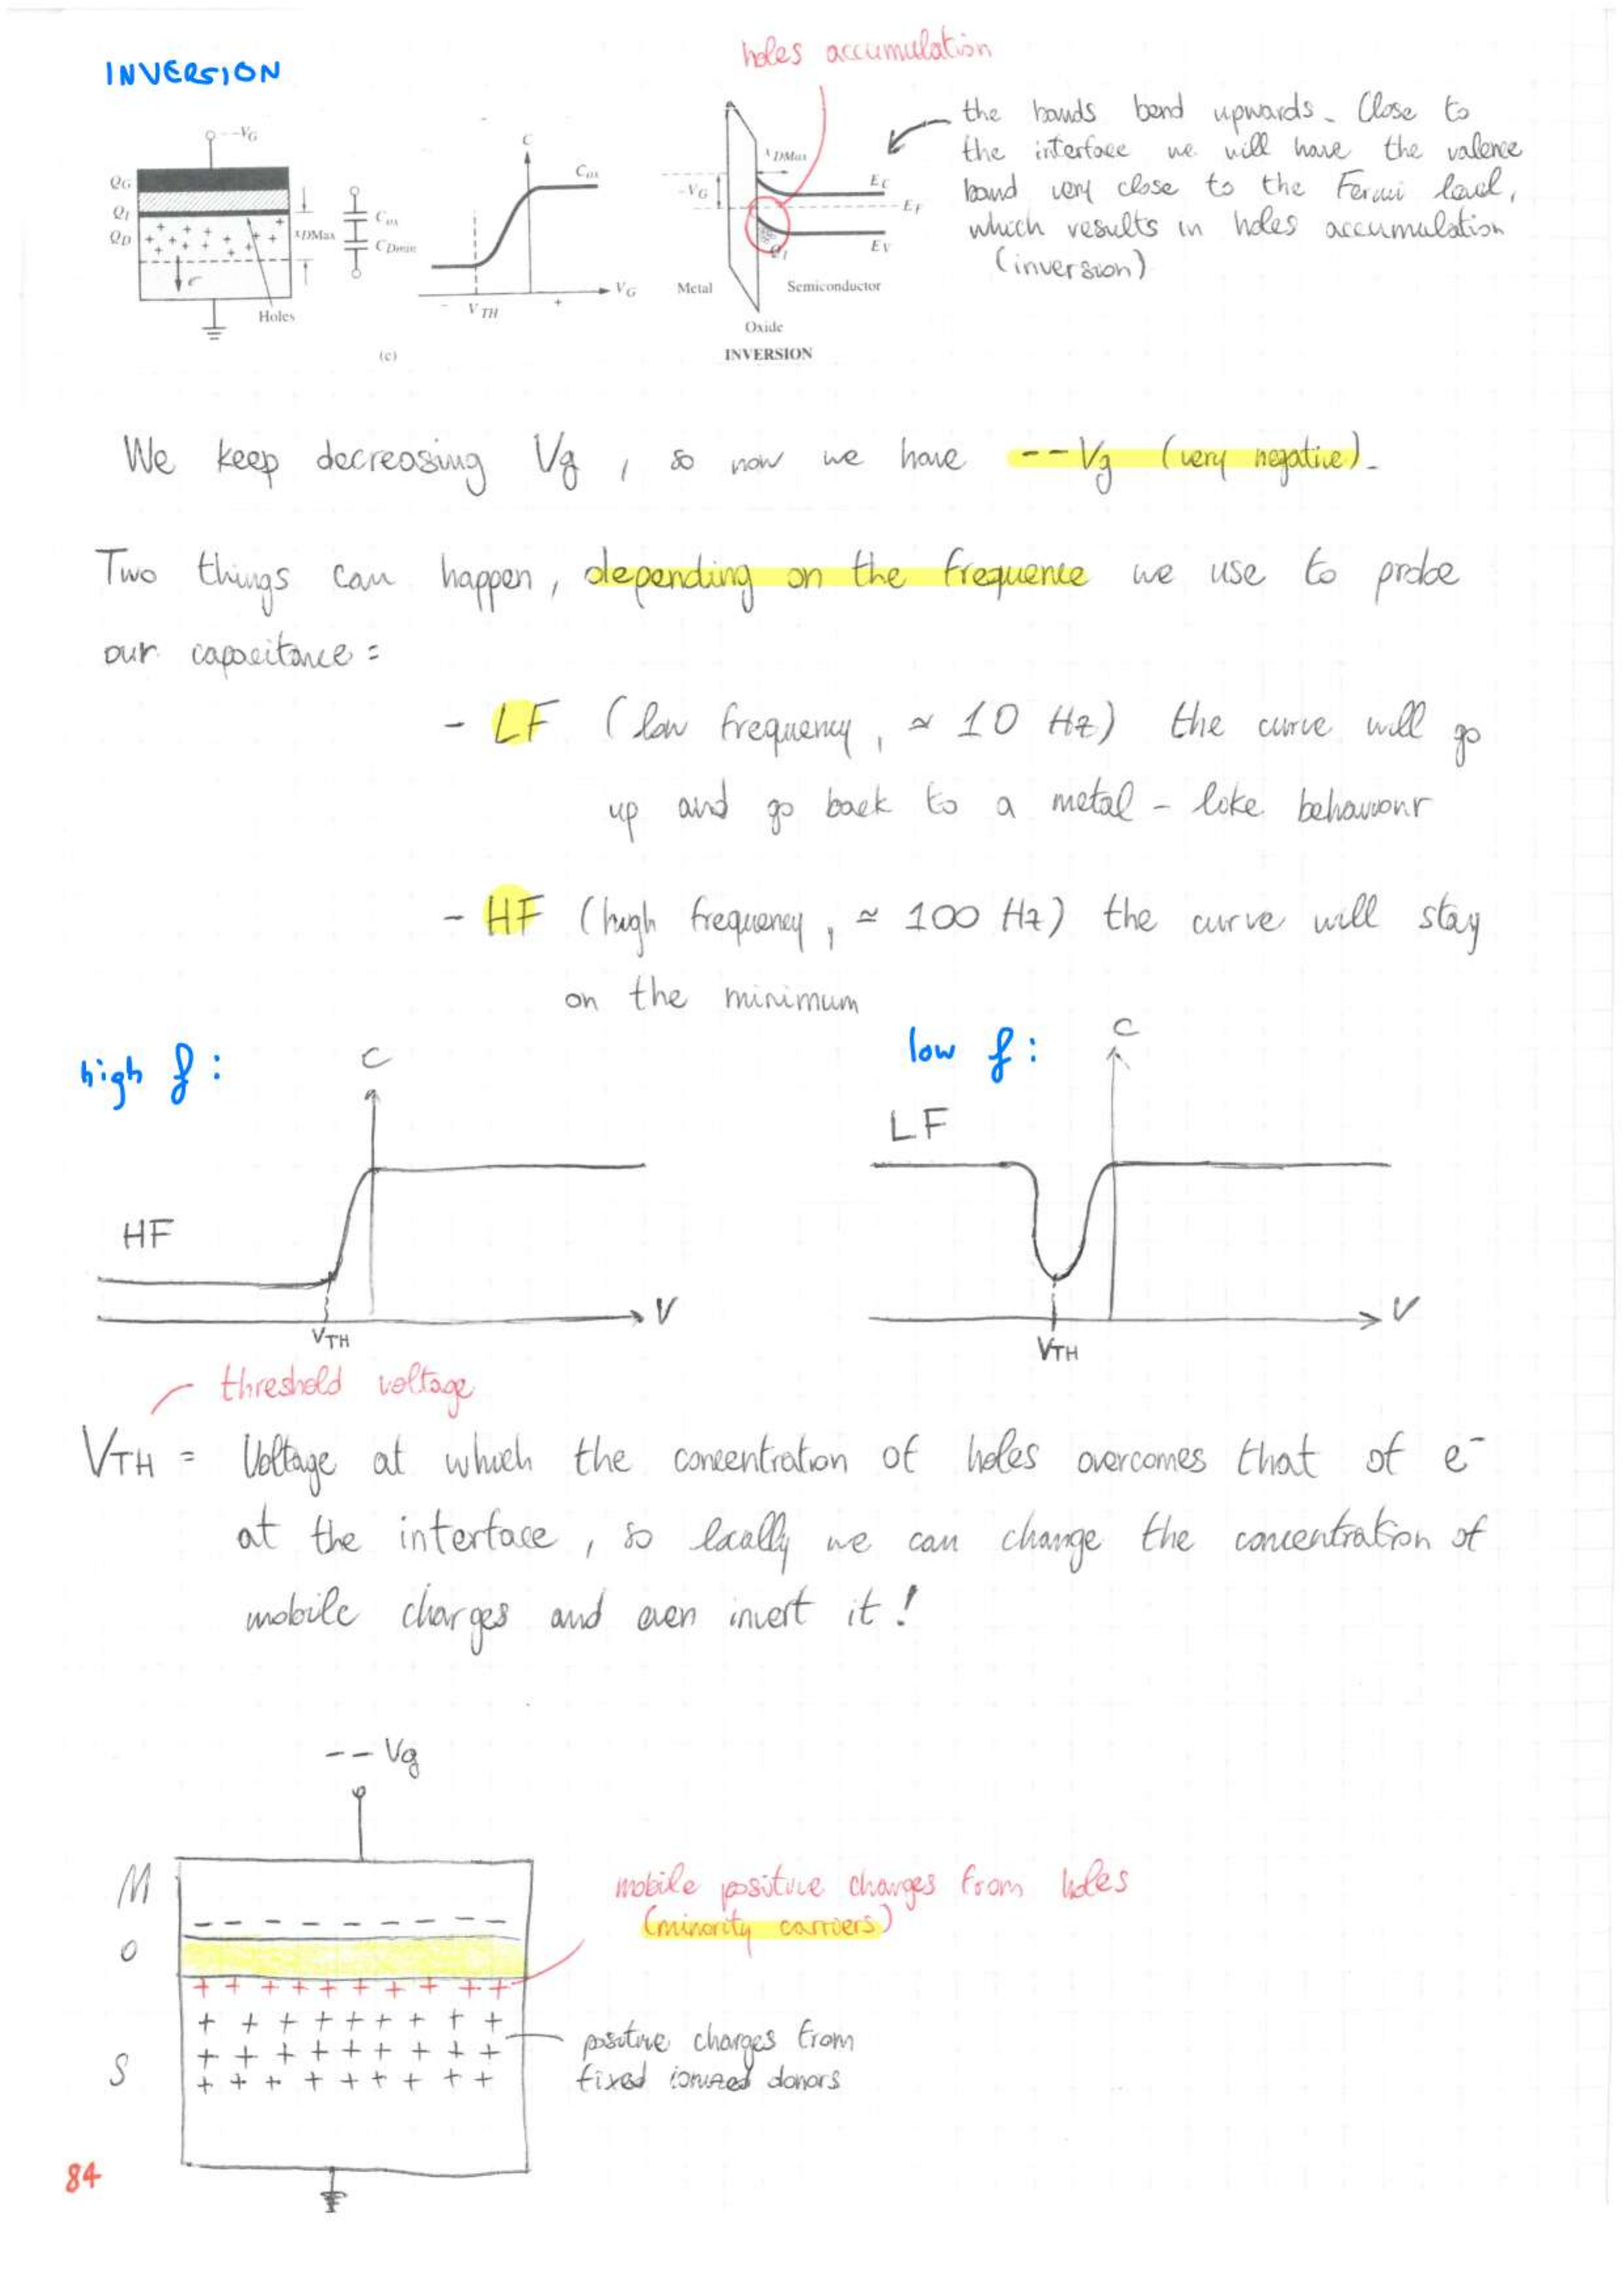 holes accumulation
INVERSION
the bands bend upwards. Close to
the interface we will have the valence
band very close to the Fermi level,
which results in holes accumulation
(inversion)
--VG
QG
QI
QD
XDMax
Cox
CDmin
Holes
C
Cox
VG
-
VTH
+
(c)
XDMax
-VG
EC
EF
EV
QI
Metal
Semiconductor
Oxide
INVERSION
We keep decreasing Vg, so now we have --Vg (very negative).
Two things can happen, depending on the frequence we use to probe
our capacitance:
- LF (low frequency, ≃ 10 Hz) the curve will go
up and go back to a metal - like behaviour
- HF (high frequency, ≃ 100 Hz) the curve will stay
on the minimum
high f:
C
HF
V
VTH
low f:
C
LF
V
VTH
threshold voltage
VTH = Voltage at which the concentration of holes overcomes that of e⁻
at the interface, so locally we can change the concentration of
mobile charges and even invert it!
-- Vg
M
O
S
mobile positive charges from holes
(minority carriers)
positive charges from
fixed ionized donors
84